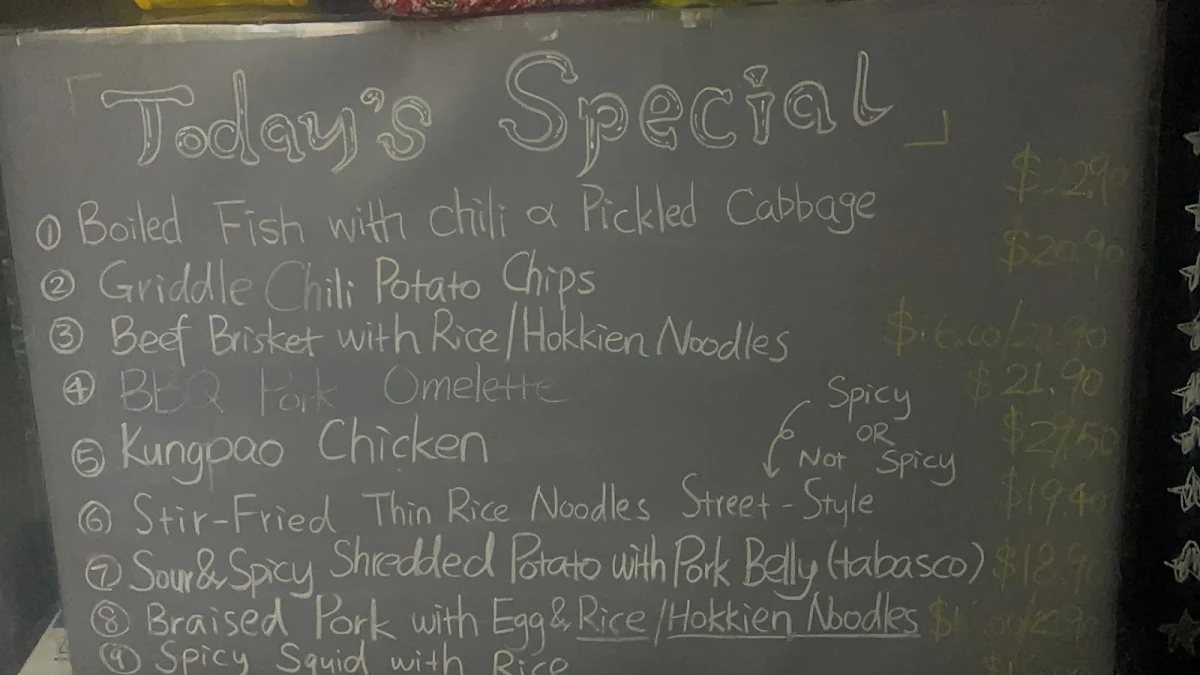 「Today's Special」
① Boiled Fish with chili & Pickled Cabbage
② Griddle Chili Potato Chips $20.90
③ Beef Brisket with Rice/Hokkien Noodles
④ BBQ Pork Omelette $21.90
⑤ Kungpao Chicken $27.50
Spicy
OR
Not Spicy
⑥ Stir-Fried Thin Rice Noodles Street-Style $19.40
⑦ Sour & Spicy Shredded Potato with Pork Belly (tabasco) $18.90
⑧ Braised Pork with Egg & Rice/Hokkien Noodles
⑨ Spicy Squid with Rice